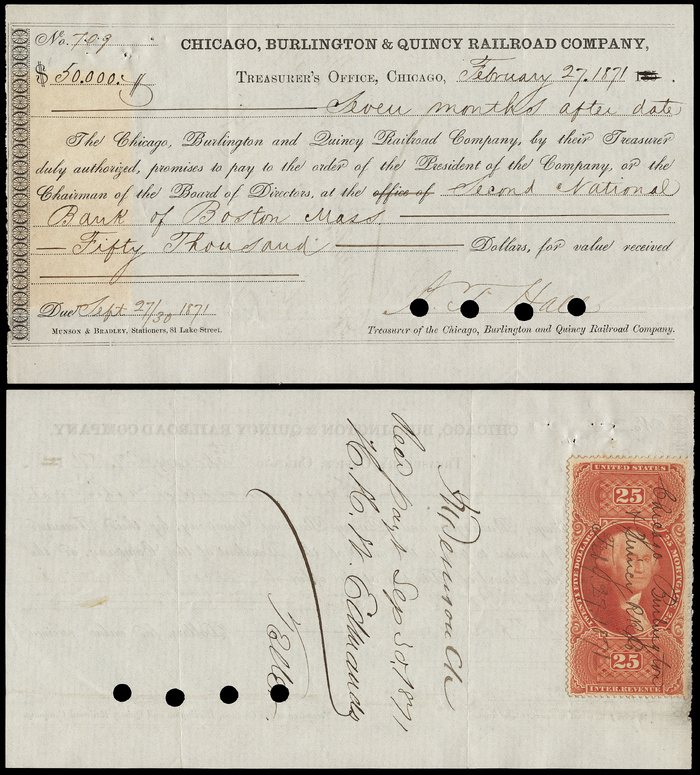 No. 709
CHICAGO, BURLINGTON & QUINCY RAILROAD COMPANY,
$ 50.000.
TREASURER'S OFFICE, CHICAGO, February 27. 1871
Seven months after date
The Chicago, Burlington and Quincy Railroad Company, by their Treasurer
duly authorized, promises to pay to the order of the President of the Company, or the
Chairman of the Board of Directors, at the office of Second National
Bank of Boston Mass
Fifty Thousand Dollars, for value received
Due Sept 27/30 1871
MUNSON & BRADLEY, Stationers, 81 Lake Street.
Treasurer of the Chicago, Burlington and Quincy Railroad Company.
Recd payt Sep 30, 1871
H. R. W. Edmands
Teller
UNITED STATES
25
TWENTY FIVE DOLLARS
MORTGAGE
Chicago Burlington
& Quincy RR Co
27
25
INTER. REVENUE